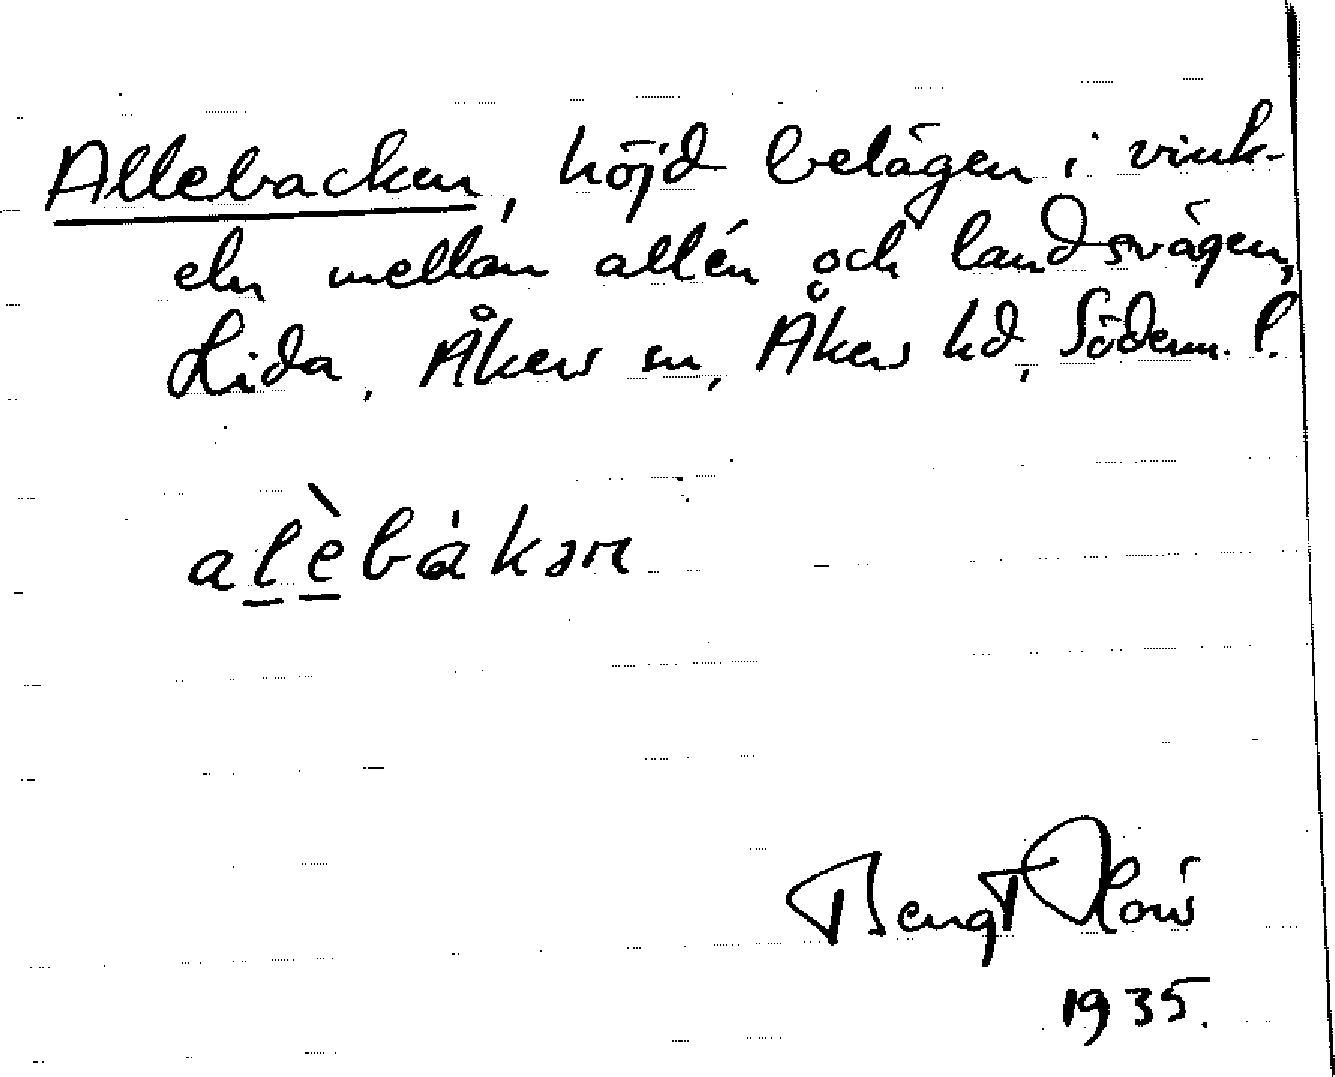 Allebacken, höjd belägen i vink-
eln mellan allén och landsvägen,
Lida, Åkers sn, Åkers hd, Söderm. l.
alèbàkən
Bengt
1935.